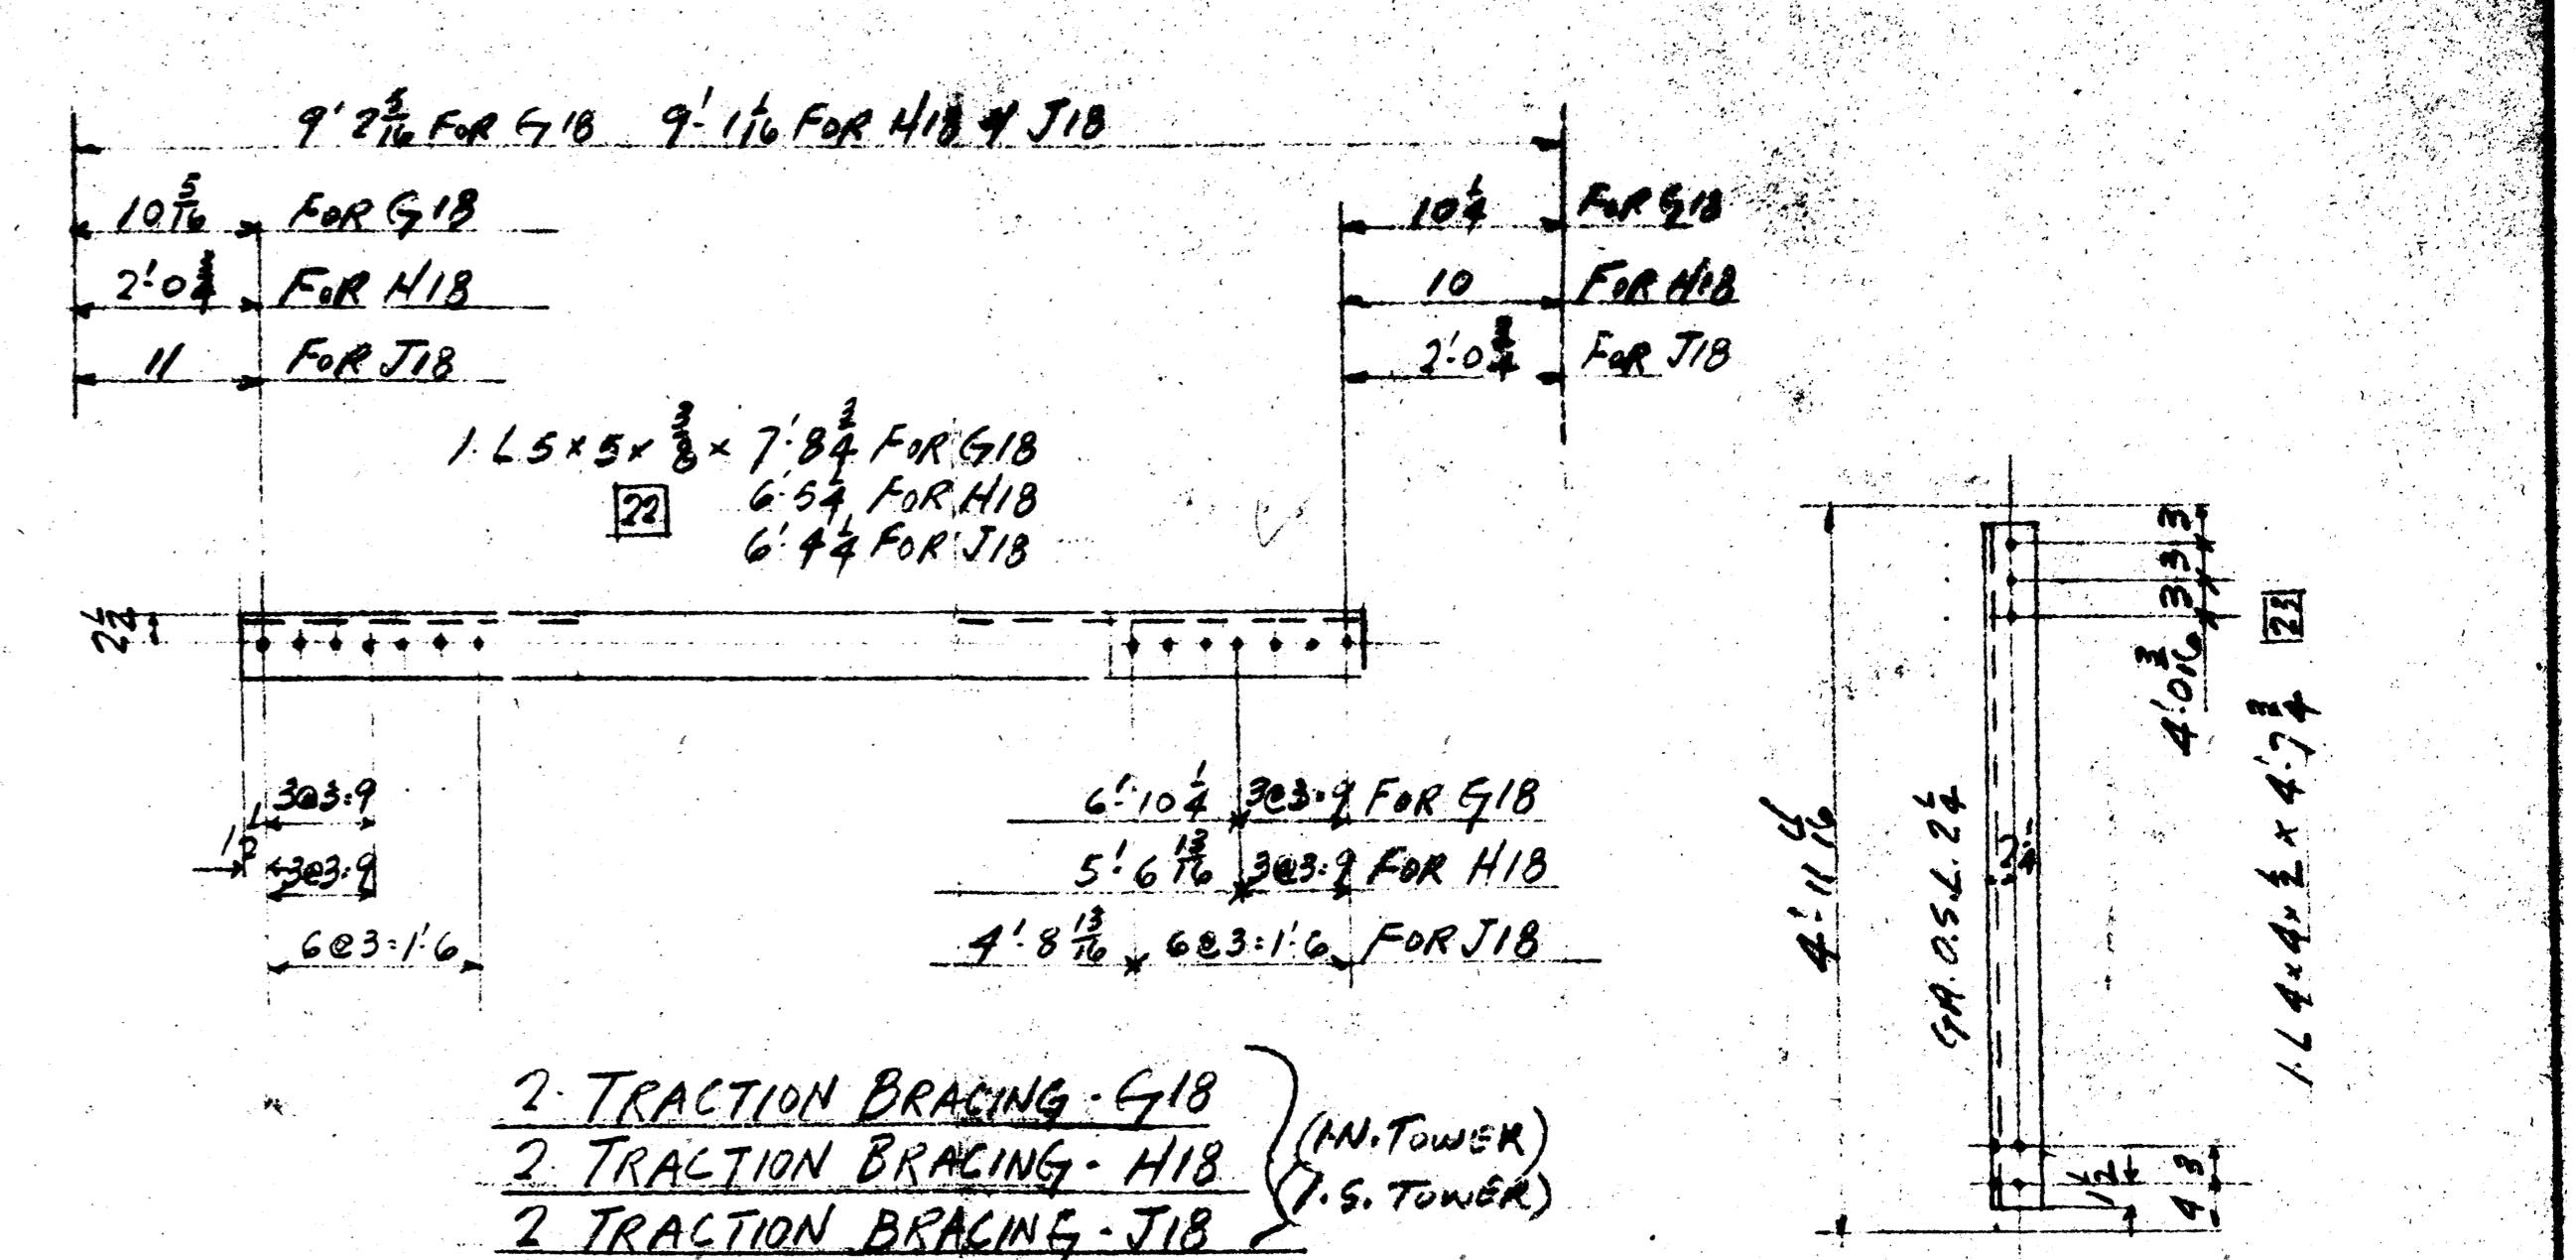 9' 2 5/16 FOR G18 9'-1 1/16 FOR H18 & J18
10 5/16 FOR G18
2'-0 3/4 FOR H18
11 FOR J18
10 1/4 FOR G18
10 FOR H18
2'-0 3/4 FOR J18
1. L 5 x 5 x 3/8 x 7'-8 3/4 FOR G18
22 6'-5 1/4 FOR H18
6'-4 1/4 FOR J18
2 1/4
3@3=9
1 1/2
3@3=9
6@3=1'-6
6'-10 1/4 3@3=9 FOR G18
5'-6 13/16 3@3=9 FOR H18
4'-8 13/16 6@3=1'-6 FOR J18
2. TRACTION BRACING - G18
2. TRACTION BRACING - H18
2 TRACTION BRACING - J18
(1-N. TOWER)
(1-S. TOWER)
4'-11 1/16
GA. O.S.L. 2 1/4
2 1/4
3
3
3
4'-0 3/16
23
1. L 4 x 4 x 1/2 x 4'-7 3/4
1 1/2
3
4